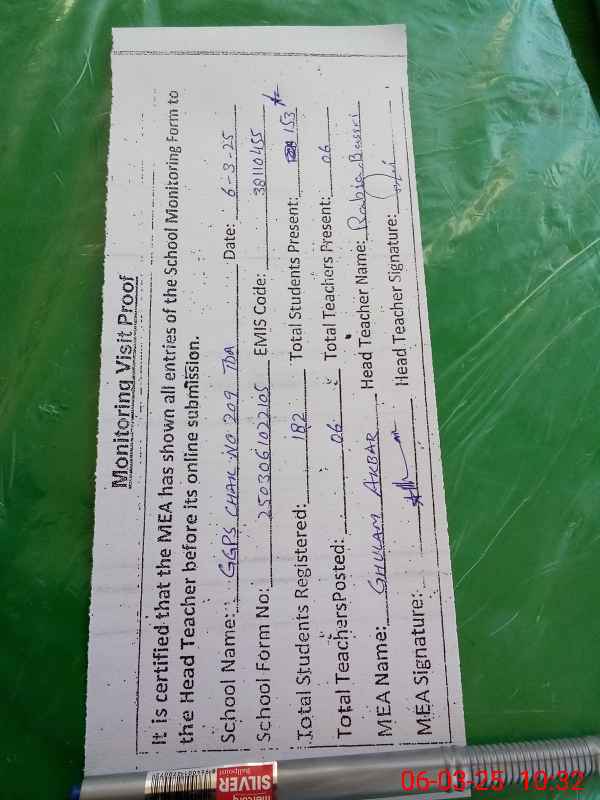 Monitoring Visit Proof
It is certified that the MEA has shown all entries of the School Monitoring Form to
the Head Teacher before its online submission.
School Name: GGPS CHAK NO 209 TDA Date: 6-3-25
School Form No: 2503061022105 EMIS Code: 38110455
Total Students Registered: 182 Total Students Present: 153
Total TeachersPosted: 06 Total Teachers Present: 06
MEA Name: GHULAM AKBAR Head Teacher Name:
MEA Signature: Head Teacher Signature:
mercury
SILVER
Ballpoint
06-03-25 10:32